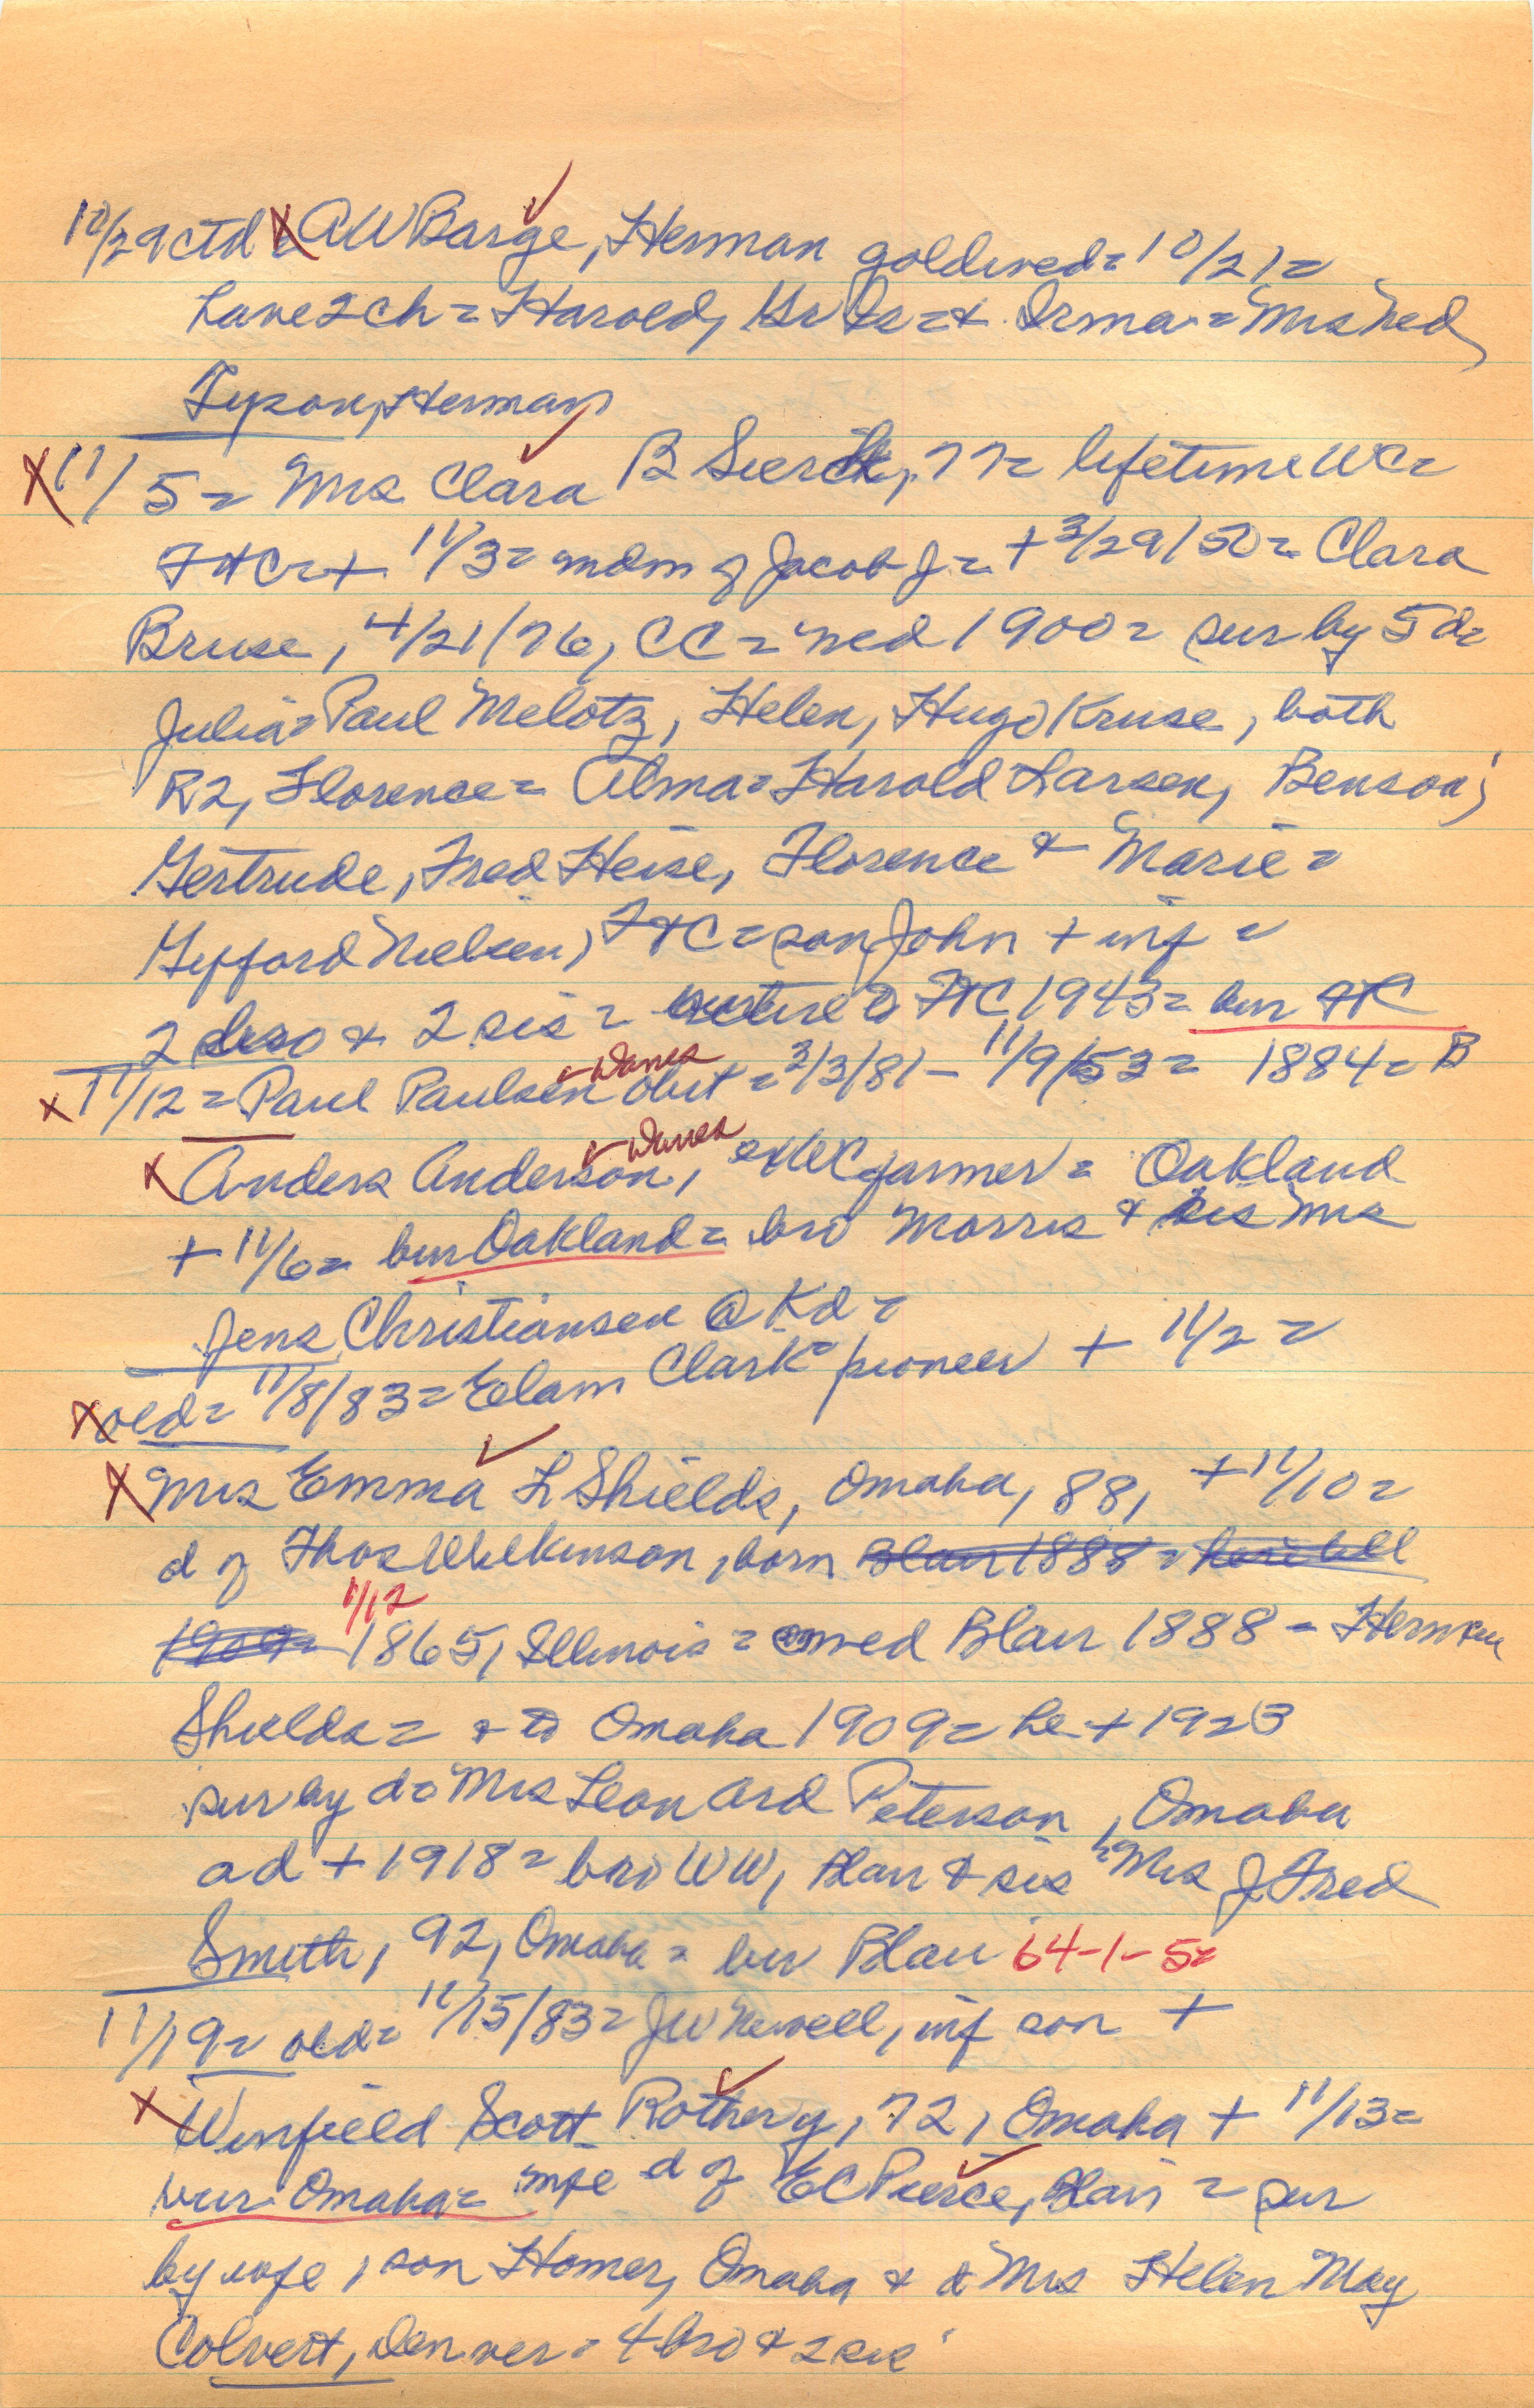 10/29 ctd = AW Barge, Herman goldwed = 10/21 =
have 2 ch = Harold, & Irma = Mrs Ned
Tyson, Herman
11/5 = Mrs Clara B Sierck, 77 = lifetime WC =
FtC = + 11/3 = of Jacob J = + 3/29/50 = Clara
Bruse, 4/21/76, CC = wed 1900 = sur by 5 d =
Julia = Paul Melotz, Helen, Hugo Kruse, both
R2, Florence = Alma = Harold Larsen, Benson;
Gertrude, Fred Heise, Florence & Marie =
Gyfford Nielsen, FtC = son John + inf =
2 bro & 2 sis = retired to FtC 1943 = bur FtC
11/12 = Paul Paulsen obit = 3/3/81 - 11/9/53 = 1884 = B
Danes
Anders Anderson, exWC farmer = Oakland
Danes
+ 11/6 = bur Oakland = bro Morris & sis Mrs
Jens Christiansen @ Kd =
old = 11/8/83 = Elam Clark = pioneer + 11/2 =
Mrs Emma L Shields, Omaha, 88, + 11/10 =
d of Thos Wilkinson, born Blair 1888 =
11/12
1909 = 1865, Illinois = wed Blair 1888 - Herman
Shields = & to Omaha 1909 = he + 1923
sur by d = Mrs Leonard Peterson, Omaha
a d + 1918 = bro WW, Blair & sis = Mrs J Fred
Smith, 92, Omaha = bur Blair 64-1-5 =
11/19 = old = 11/15/83 = JW Newell, inf son +
Winfield Scott Rothery, 72, Omaha + 11/13 =
bur Omaha = d of EC Pierce, Blair = sur
by wife, son Homer, Omaha & d Mrs Helen May
Colvert, Denver = 4 bro & 2 sis